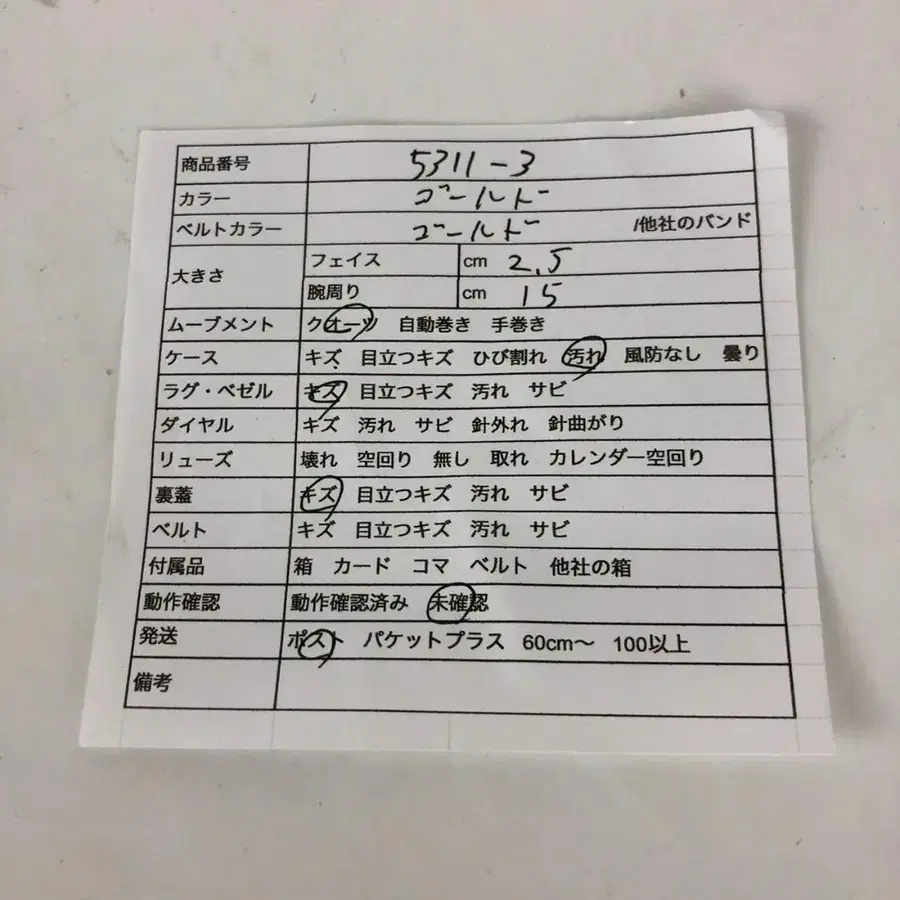 商品番号 5311-3
カラー ゴールド
ベルトカラー ゴールド /他社のバンド
大きさ フェイス cm 2.5
腕周り cm 15
ムーブメント クオーツ 自動巻き 手巻き
ケース キズ 目立つキズ ひび割れ 汚れ 風防なし 曇り
ラグ・ベゼル キズ 目立つキズ 汚れ サビ
ダイヤル キズ 汚れ サビ 針外れ 針曲がり
リューズ 壊れ 空回り 無し 取れ カレンダー空回り
裏蓋 キズ 目立つキズ 汚れ サビ
ベルト キズ 目立つキズ 汚れ サビ
付属品 箱 カード コマ ベルト 他社の箱
動作確認 動作確認済み 未確認
発送 ポスト パケットプラス 60cm〜 100以上
備考